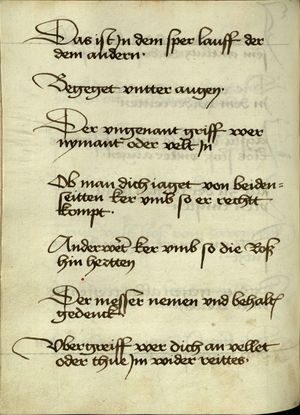 Das ist In dem sper lauff der
dem andern.
Begeget vntter augen.
Der vngenant griff wer
nymant oder velt In
Ob man dich iaget von beiden-
seitten ker vmb so er recht
kompt.
Anderwert ker vmb so die Roß
hin hertten
Der messer nemen vnd behalt
gedenck
Vbergreiff wer dich an vellet
oder thue Im wider reittes.